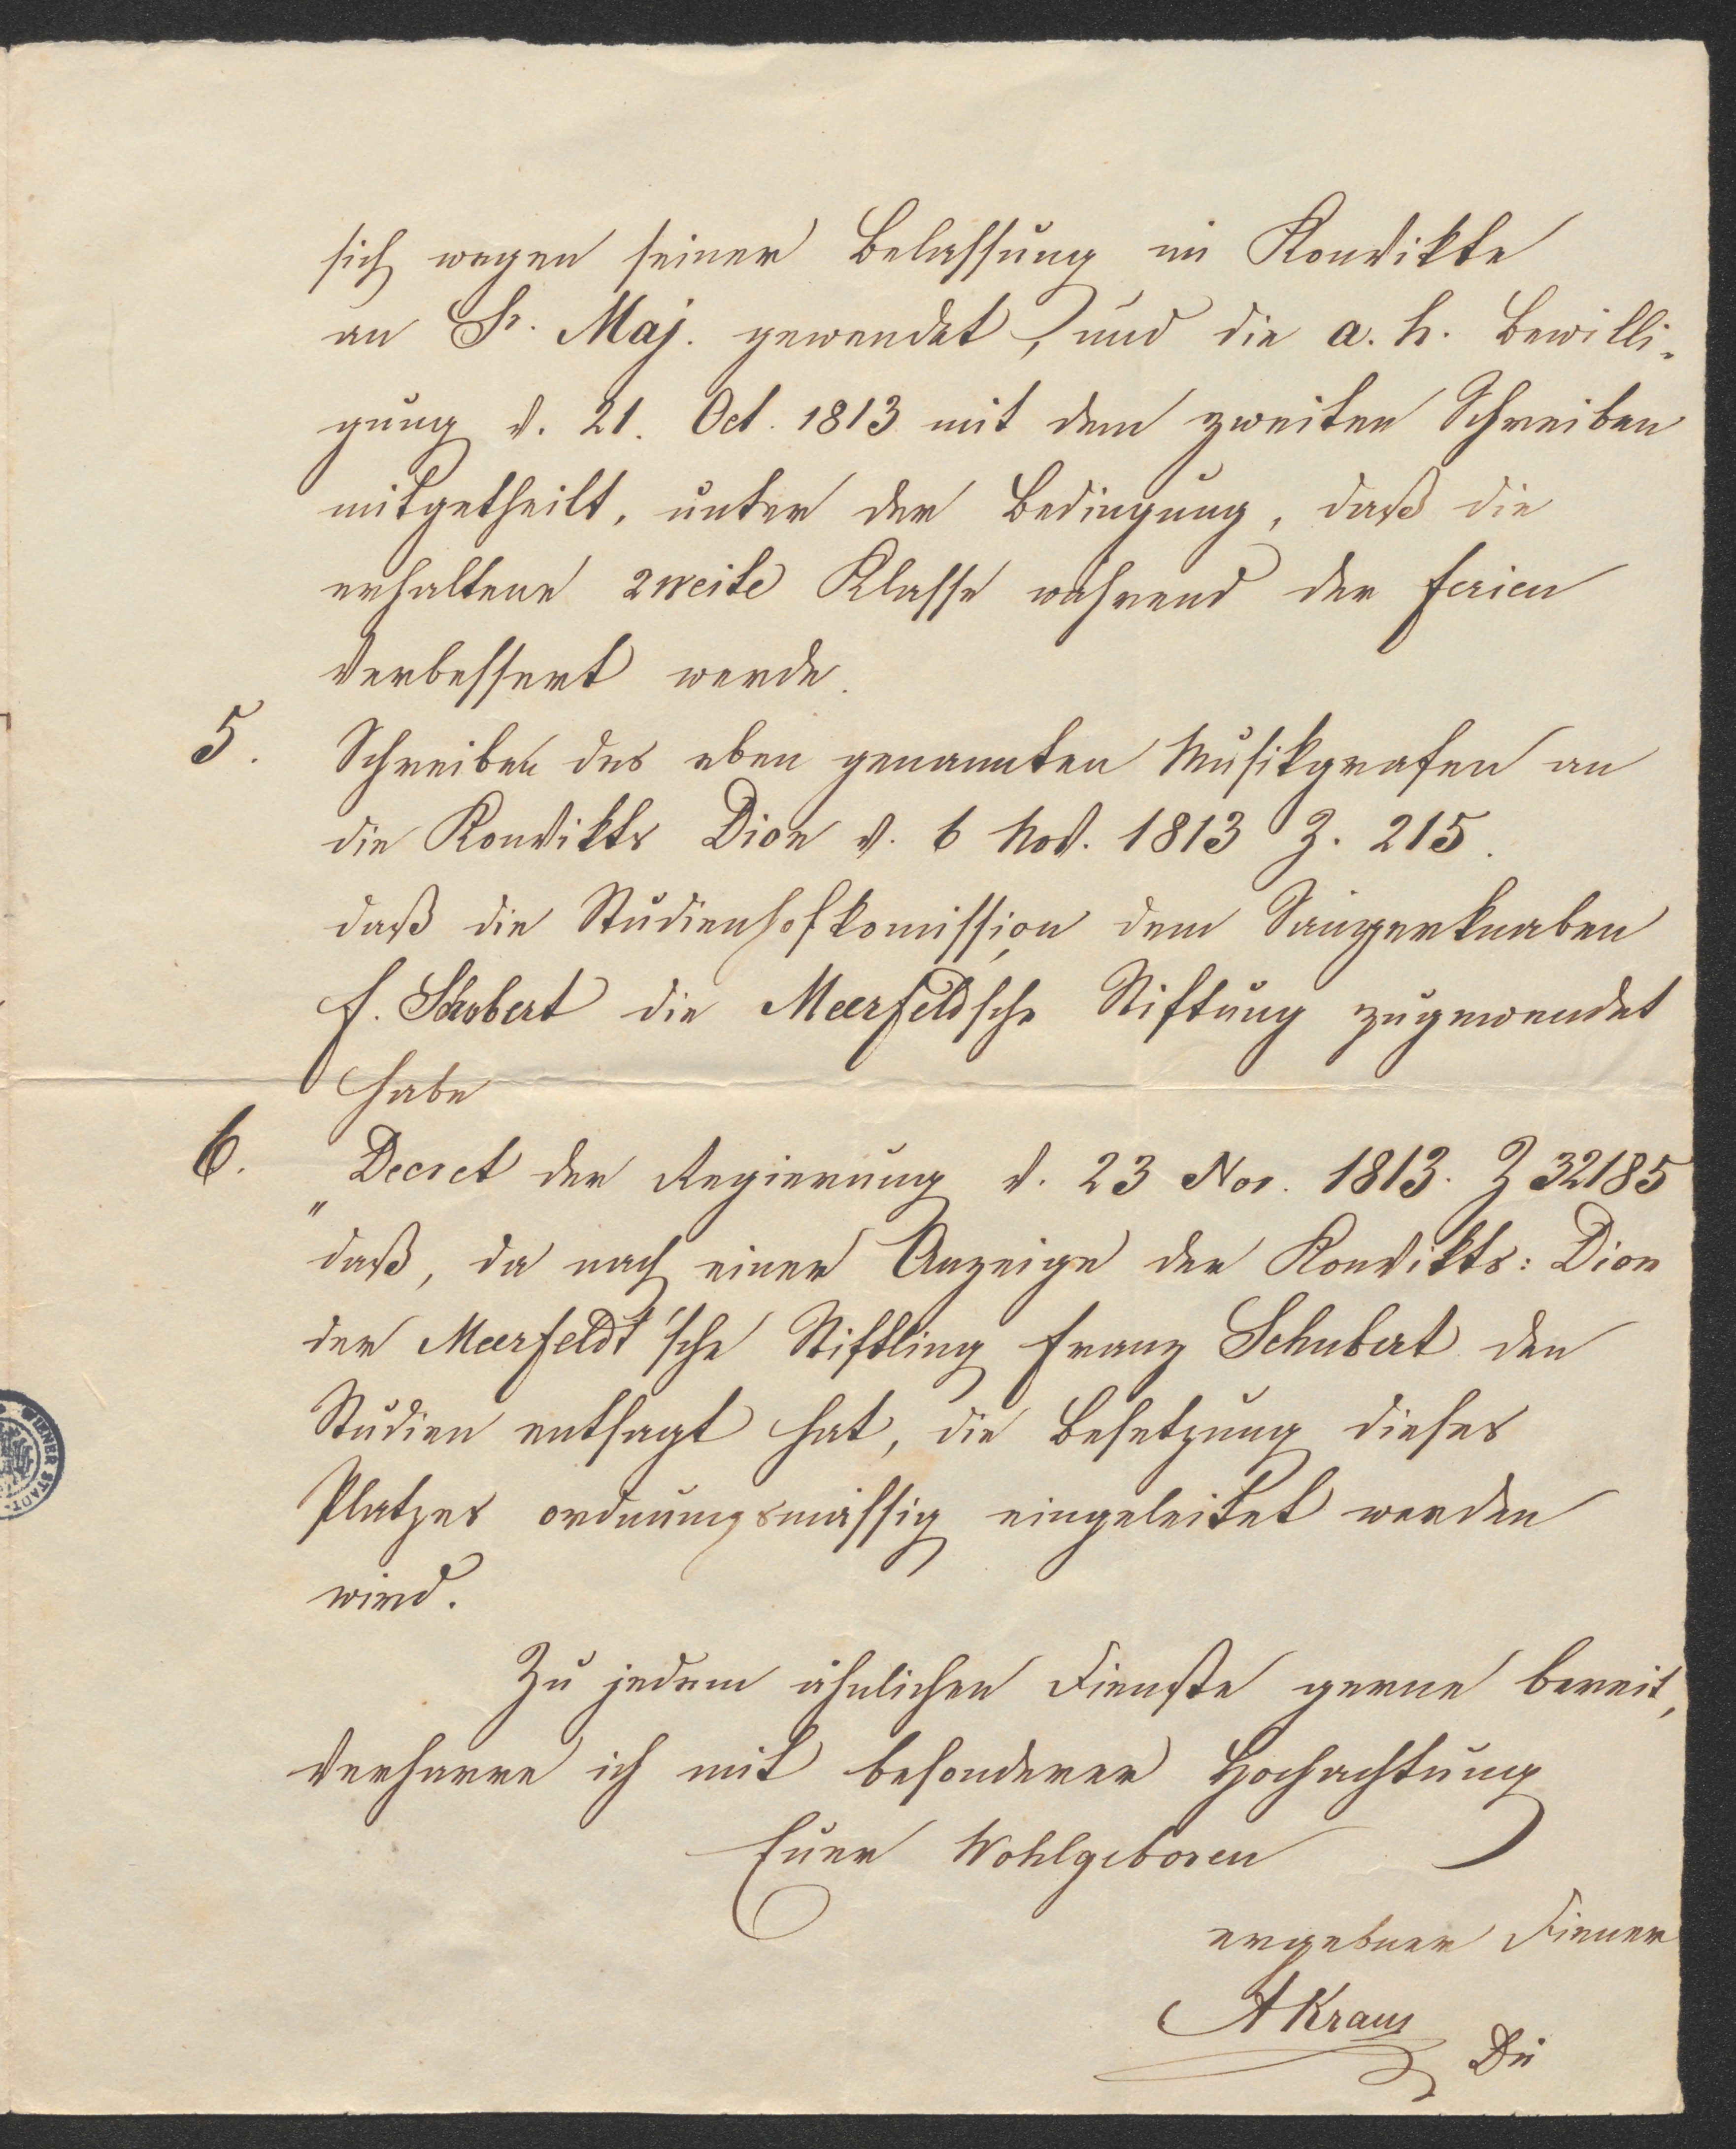 sich wegen seiner Belassung im Konvikte
an Sr. Maj. gewendet, und die a. h. Bewilli-
gung v. 21. Oct. 1813 mit dem zweiten Schreiben
mitgetheilt, unter der Bedingung, daß die
erhaltene zweite Klasse während der Ferien
verbessert werde.
5. Schreiben des eben genannten Musikgrafen an
die Konvikts Dion v. 6 Nov. 1813 Z. 215.
daß die Studienhofkomission dem Sängerknaben
F. Schubert die Meerfeldsche Stiftung zugewendet
habe
6. Decret der Regierung v. 23 Nov. 1813. Z 32185
" daß, da nach einer Anzeige der Konvikts: Dion
der Meerfeldt'sche Stiftling Franz Schubert den
Studien entsagt hat, die Besetzung dieses
Platzes ordnungsmässig eingeleitet werden
wird.
Zu jedem ähnlichen Dienste gerne bereit,
verharre ich mit besonderer Hochachtung
Euer Wohlgeboren
ergebner Diener
AKraus
WIENER STADT-